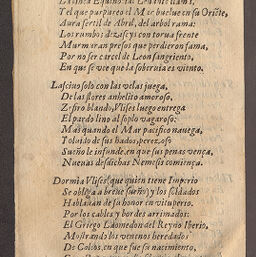 Tal que parpareo el Mar buelue en su Oriẽte,
Aura fertil de Abril, del arbol rama:
Los rumbos dezasys con torua frente
Murmuran presos que perdieron fama,
Por no ser carcel de Leon sangriento,
En que se vee que la soberuia es viento.
Lasciuo solo con las velas juega,
De las flores anhelito amoroso,
Zefiro blando, y Vlises luego entrega
El pardo lino al soplo vagaroso:
Mas quando el Mar pacifico nauega,
Tolvido de sus hados, perezoso
Sueño le infunde en que sus penas vença,
Nueuas desdichas Nemesis comiença.
Dormia Vlises (que quien tiene Imperio
Se obliga a breue sueño) y los soldados
Hablauan de su honor en vituperio.
Por los cables y bordes arrimados:
El Griego Laomedon del Reyno Iberio,
Mostrando los venenos heredados
De Colcos, en que fue su nacimiento,